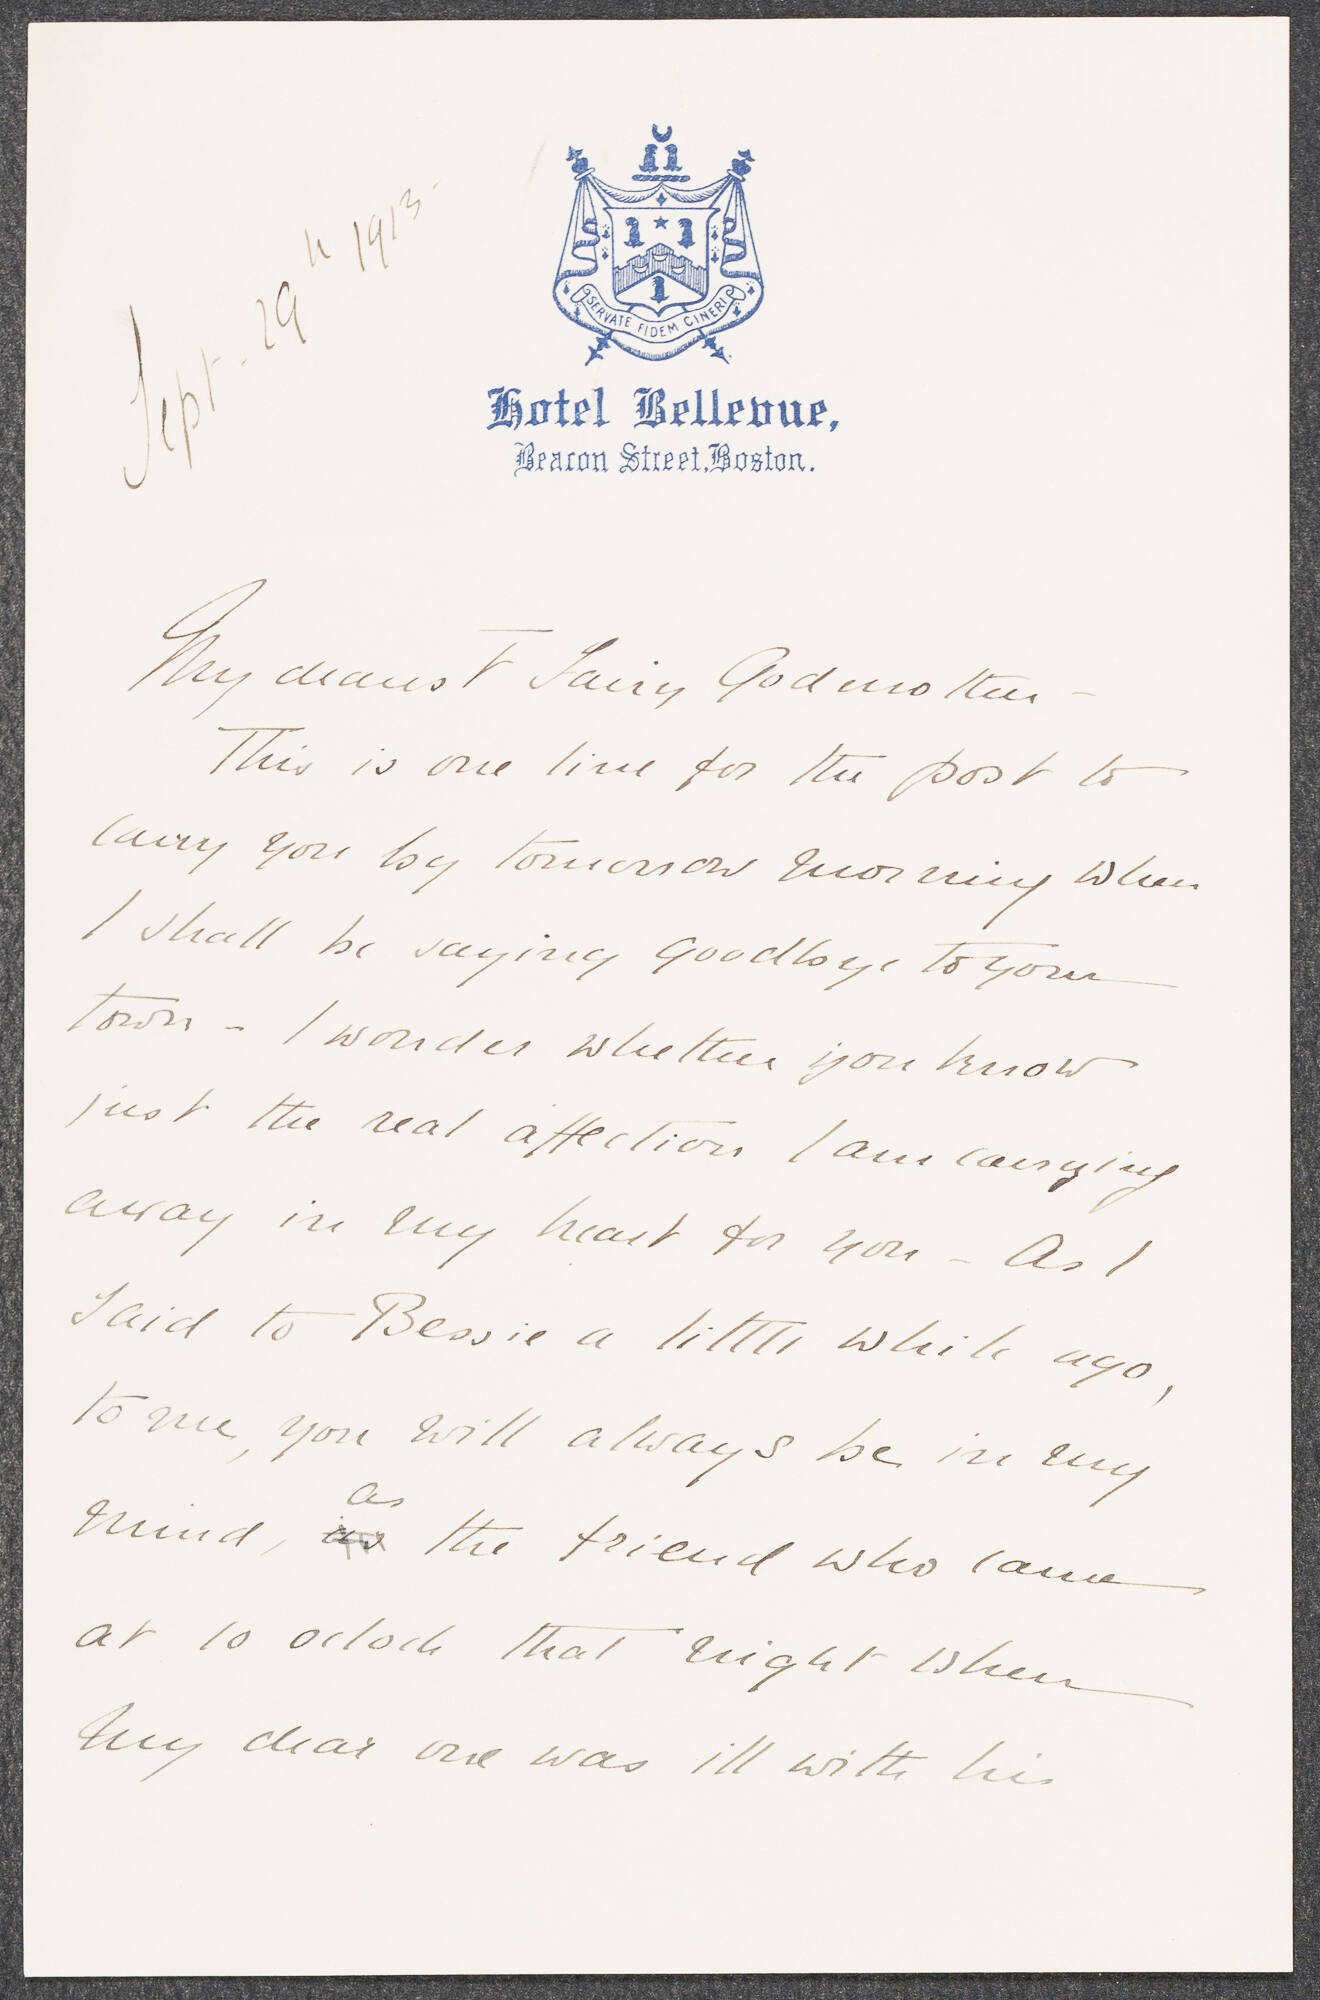 Sept. 29th 1913-
SERVATE FIDEM CINERI
Hotel Bellevue,
Beacon Street, Boston.
My dearest Fairy Godmother -
This is one line for the post to
carry you by tomorrow morning when
I shall be saying goodbye to your
town - I wonder whether you know
just the real affection I am carrying
away in my heart for you - As I
said to Bessie a little while ago,
to me, you will always be in my
as
mind, the friend who came
at 10 oclock that night when
my dear one was ill with his